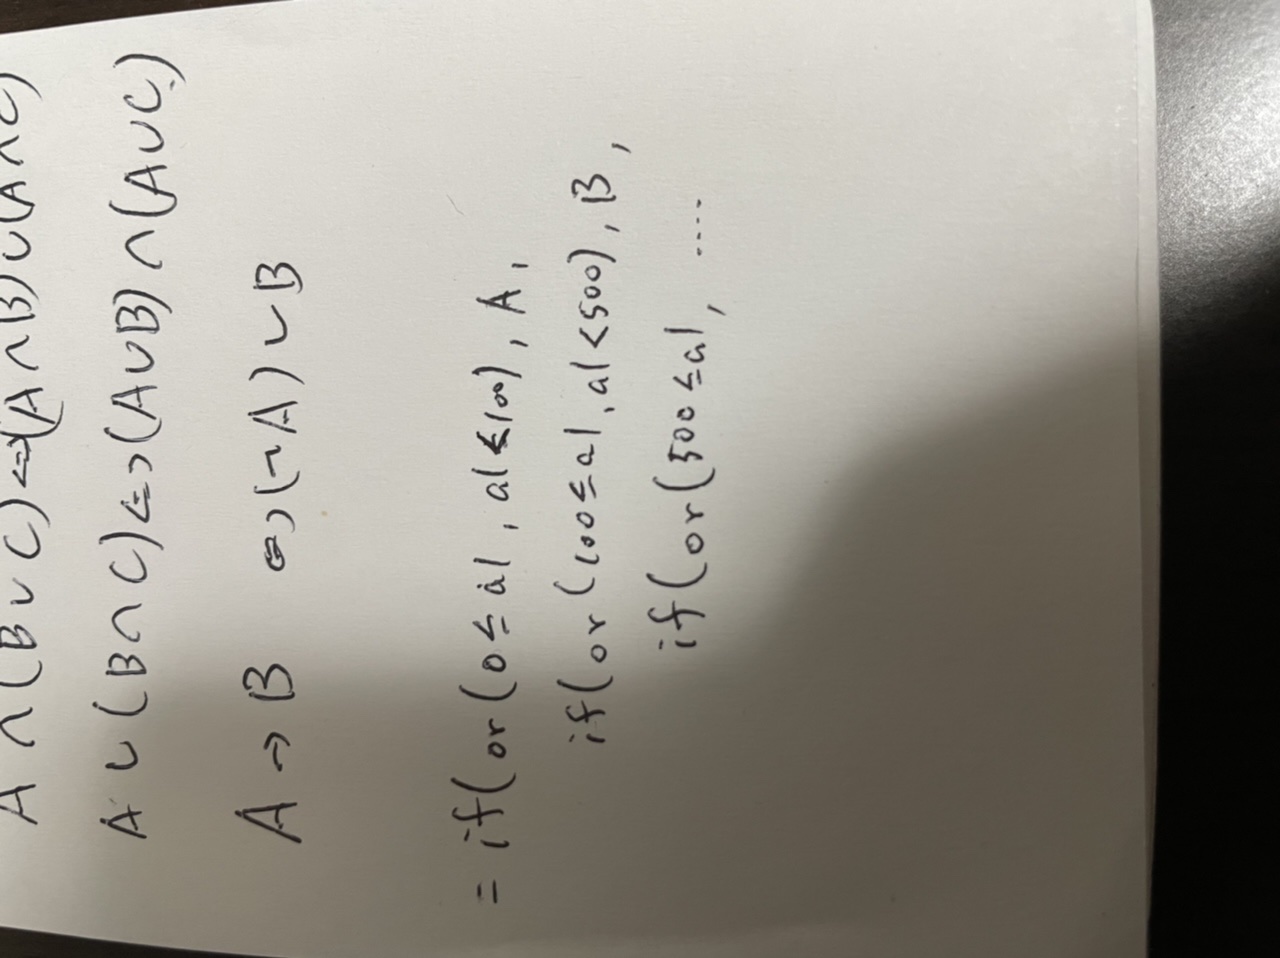 A ∩ (B ∪ C) ⇔ (A ∩ B) ∪ (A ∩ C)
A ∪ (B ∩ C) ⇔ (A ∪ B) ∩ (A ∪ C)
A → B ⇔ (¬A) ∪ B
= if (or (0 ≤ a1, a1 ≤ 100), A,
if (or (100 ≤ a1, a1 < 500), B,
if (or (500 ≤ a1, ....